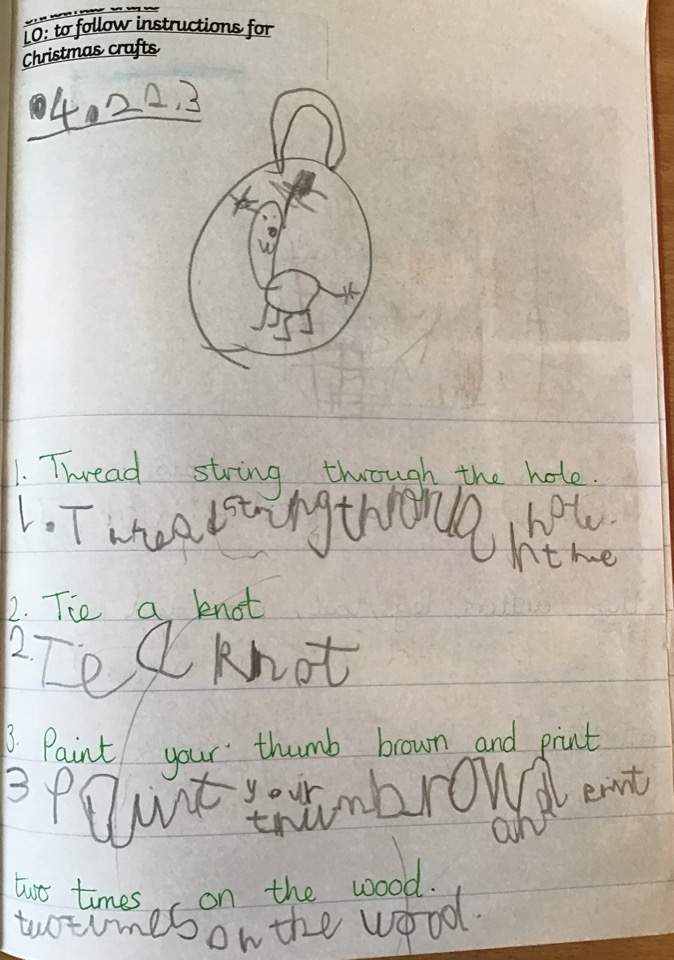 LO: to follow instructions for
Christmas crafts
04.22.3
1. Thread string through the hole.
1. Thread string through hole.
the
2. Tie a knot
2. Tie a knot
3. Paint your thumb brown and print
3 Paint your thumbrown and print
two times on the wood.
two times on the wood.